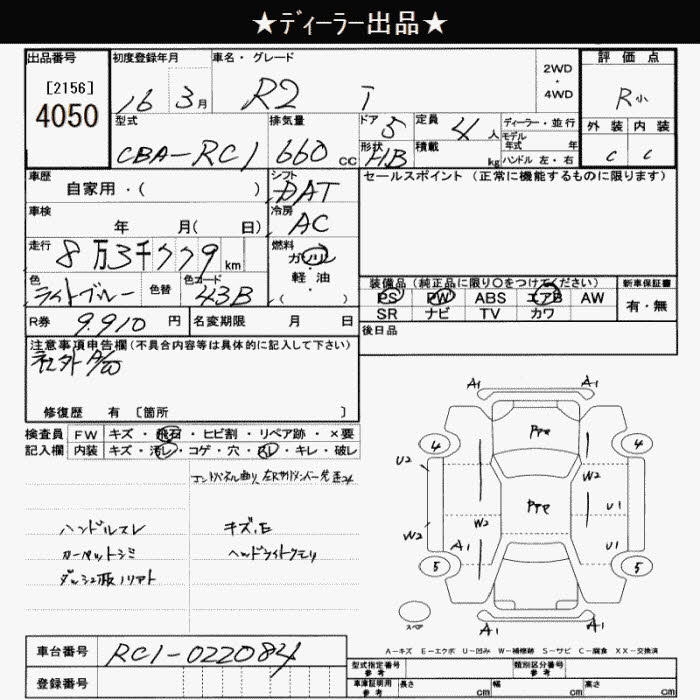 ★ディーラー出品★
出品番号
[2156]
4050
初度登録年月
16 3月
車名・グレード
R2 i
2WD
・
4WD
評価点
R小
外装 内装
C C
型式
CBA-RC1
排気量
660 CC
ドア 5
形状 HB
定員 4人
積載 kg
ディーラー・並行
モデル
年式 年
ハンドル 左・右
車歴
自家用・( )
シフト
DAT
セールスポイント(正常に機能するものに限ります)
車検
年 月( 日)
冷房
AC
走行
8万3千779km
燃料
ガソリン
軽・油
( )
色
ライトブルー
色替
色コード
43B
装備品(純正品に限り○をつけてください)
PS PW ABS エアB AW
SR ナビ TV カワ
新車保証書
有・無
R券 9.910円
名変期限 月 日
後日品
注意事項申告欄(不具合内容等は具体的に記入して下さい)
社外A/W
修復歴 有 [箇所 ]
検査員
記入欄
FW キズ・飛石・ヒビ割・リペア跡・×要
内装 キズ・汚レ・コゲ・穴・スレ・キレ・破レ
ハンドルスレ
カーペットシミ
キズ.E
ヘッドライトクモリ
A1 A1
Pre
4 4
U2
W2
W2
Pre
U1
W2
A1
U1
5 5
スペア
A1 A1
A-キズ E-エクボ U-凹み W-補修跡 S-サビ C-腐食 XX-交換済
車台番号 RC1-022084
登録番号
型式指定番号
参考
類別区分番号
参考
車庫証明用
参考
長さ cm 幅 cm 高さ cm